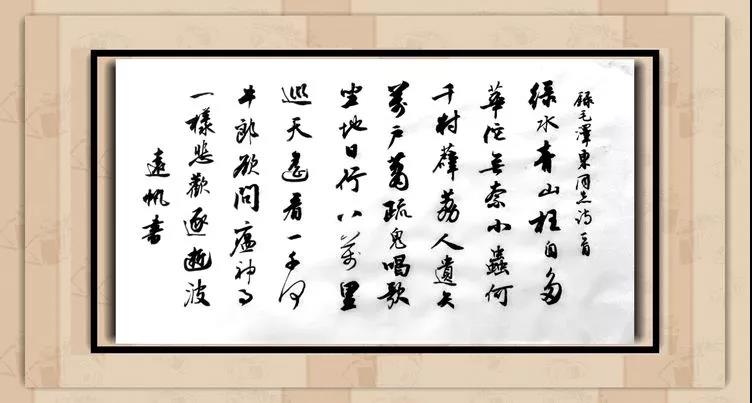 録毛澤東同志詩一首
绿水青山枉自多
華佗無奈小蟲何
千村薜荔人遺矢
萬户蕭疏鬼唱歌
坐地日行八萬里
巡天遙看一千河
牛郎欲問瘟神事
一樣悲歡逐逝波
遠帆書